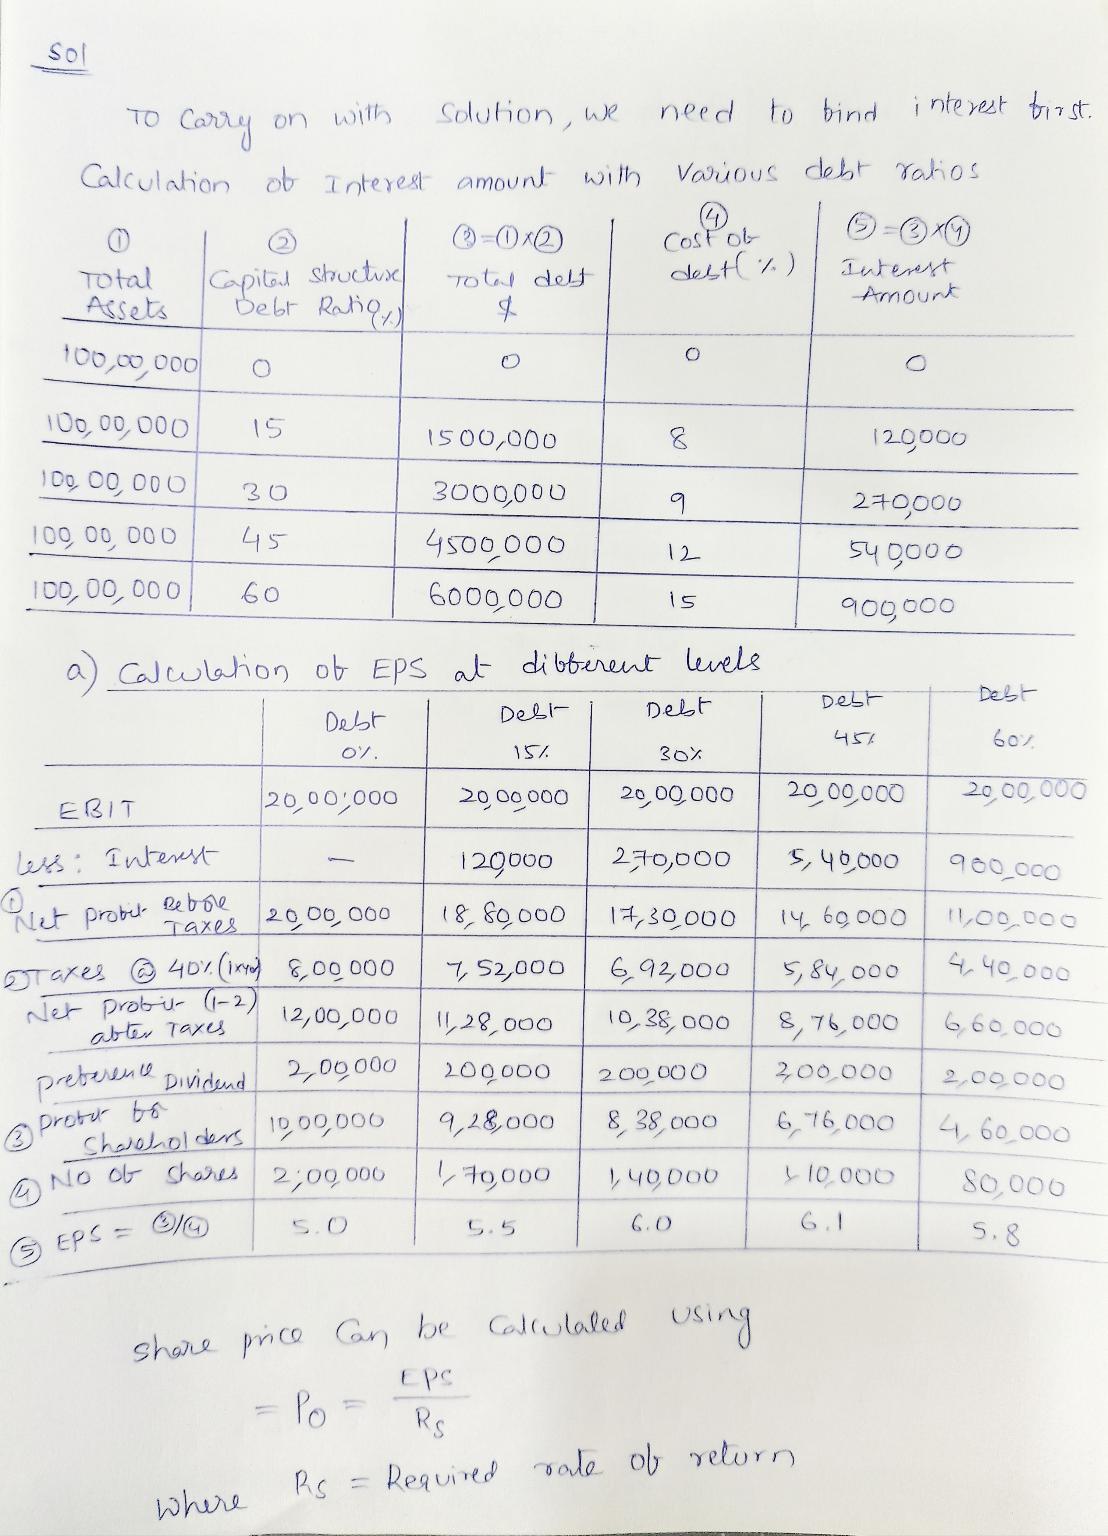 Sol
To Carry on with Solution, we need to find interest first.
Calculation of Interest amount with Various debt ratios
① ② ③=①×② ④ ⑤=③×④
Total Assets Capital Structure Debt Ratio(%) Total debt $ Cost of debt(%) Interest Amount
100,00,000 0 0 0 0
100,00,000 15 1500,000 8 120,000
100,00,000 30 3000,000 9 270,000
100,00,000 45 4500,000 12 540,000
100,00,000 60 6000,000 15 900,000
a) Calculation of EPS at different levels
Debt 0% Debt 15% Debt 30% Debt 45% Debt 60%
EBIT 20,00,000 20,00,000 20,00,000 20,00,000 20,00,000
less: Interest — 120,000 2,70,000 5,40,000 900,000
① Net profit Before Taxes 20,00,000 18,80,000 17,30,000 14,60,000 11,00,000
② Taxes @ 40% (1×40) 8,00,000 7,52,000 6,92,000 5,84,000 4,40,000
Net Profit (1-2) after Taxes 12,00,000 11,28,000 10,38,000 8,76,000 6,60,000
preference Dividend 2,00,000 200,000 200,000 200,000 2,00,000
③ Profit for Shareholders 10,00,000 9,28,000 8,38,000 6,76,000 4,60,000
④ No of Shares 2,00,000 1,70,000 1,40,000 1,10,000 80,000
⑤ EPS = ③/④ 5.0 5.5 6.0 6.1 5.8
Share price Can be Calculated using
= P0 = EPS / Rs
Where Rs = Required rate of return